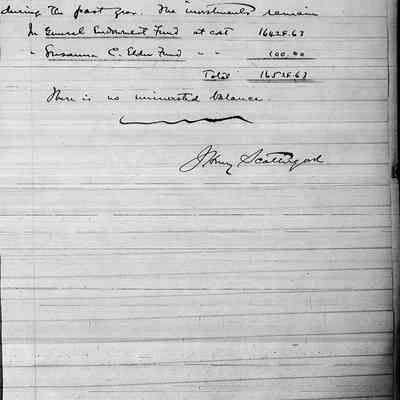 during the past year. The investments remain
In General Endowment Fund at cost 16428.63
" Susanna C. Elder Fund " " 100.00
Total 16528.63
There is no uninvested balance.
J Henry Scattergood